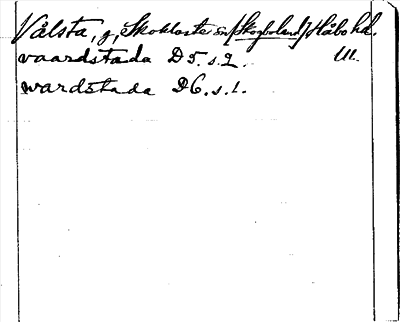 Valsta, g, Skokloster sn, /Skogboland/, Håbo hd.
vaardstada D 5. s. 2. Ul.
wardstada D6. s. 1.